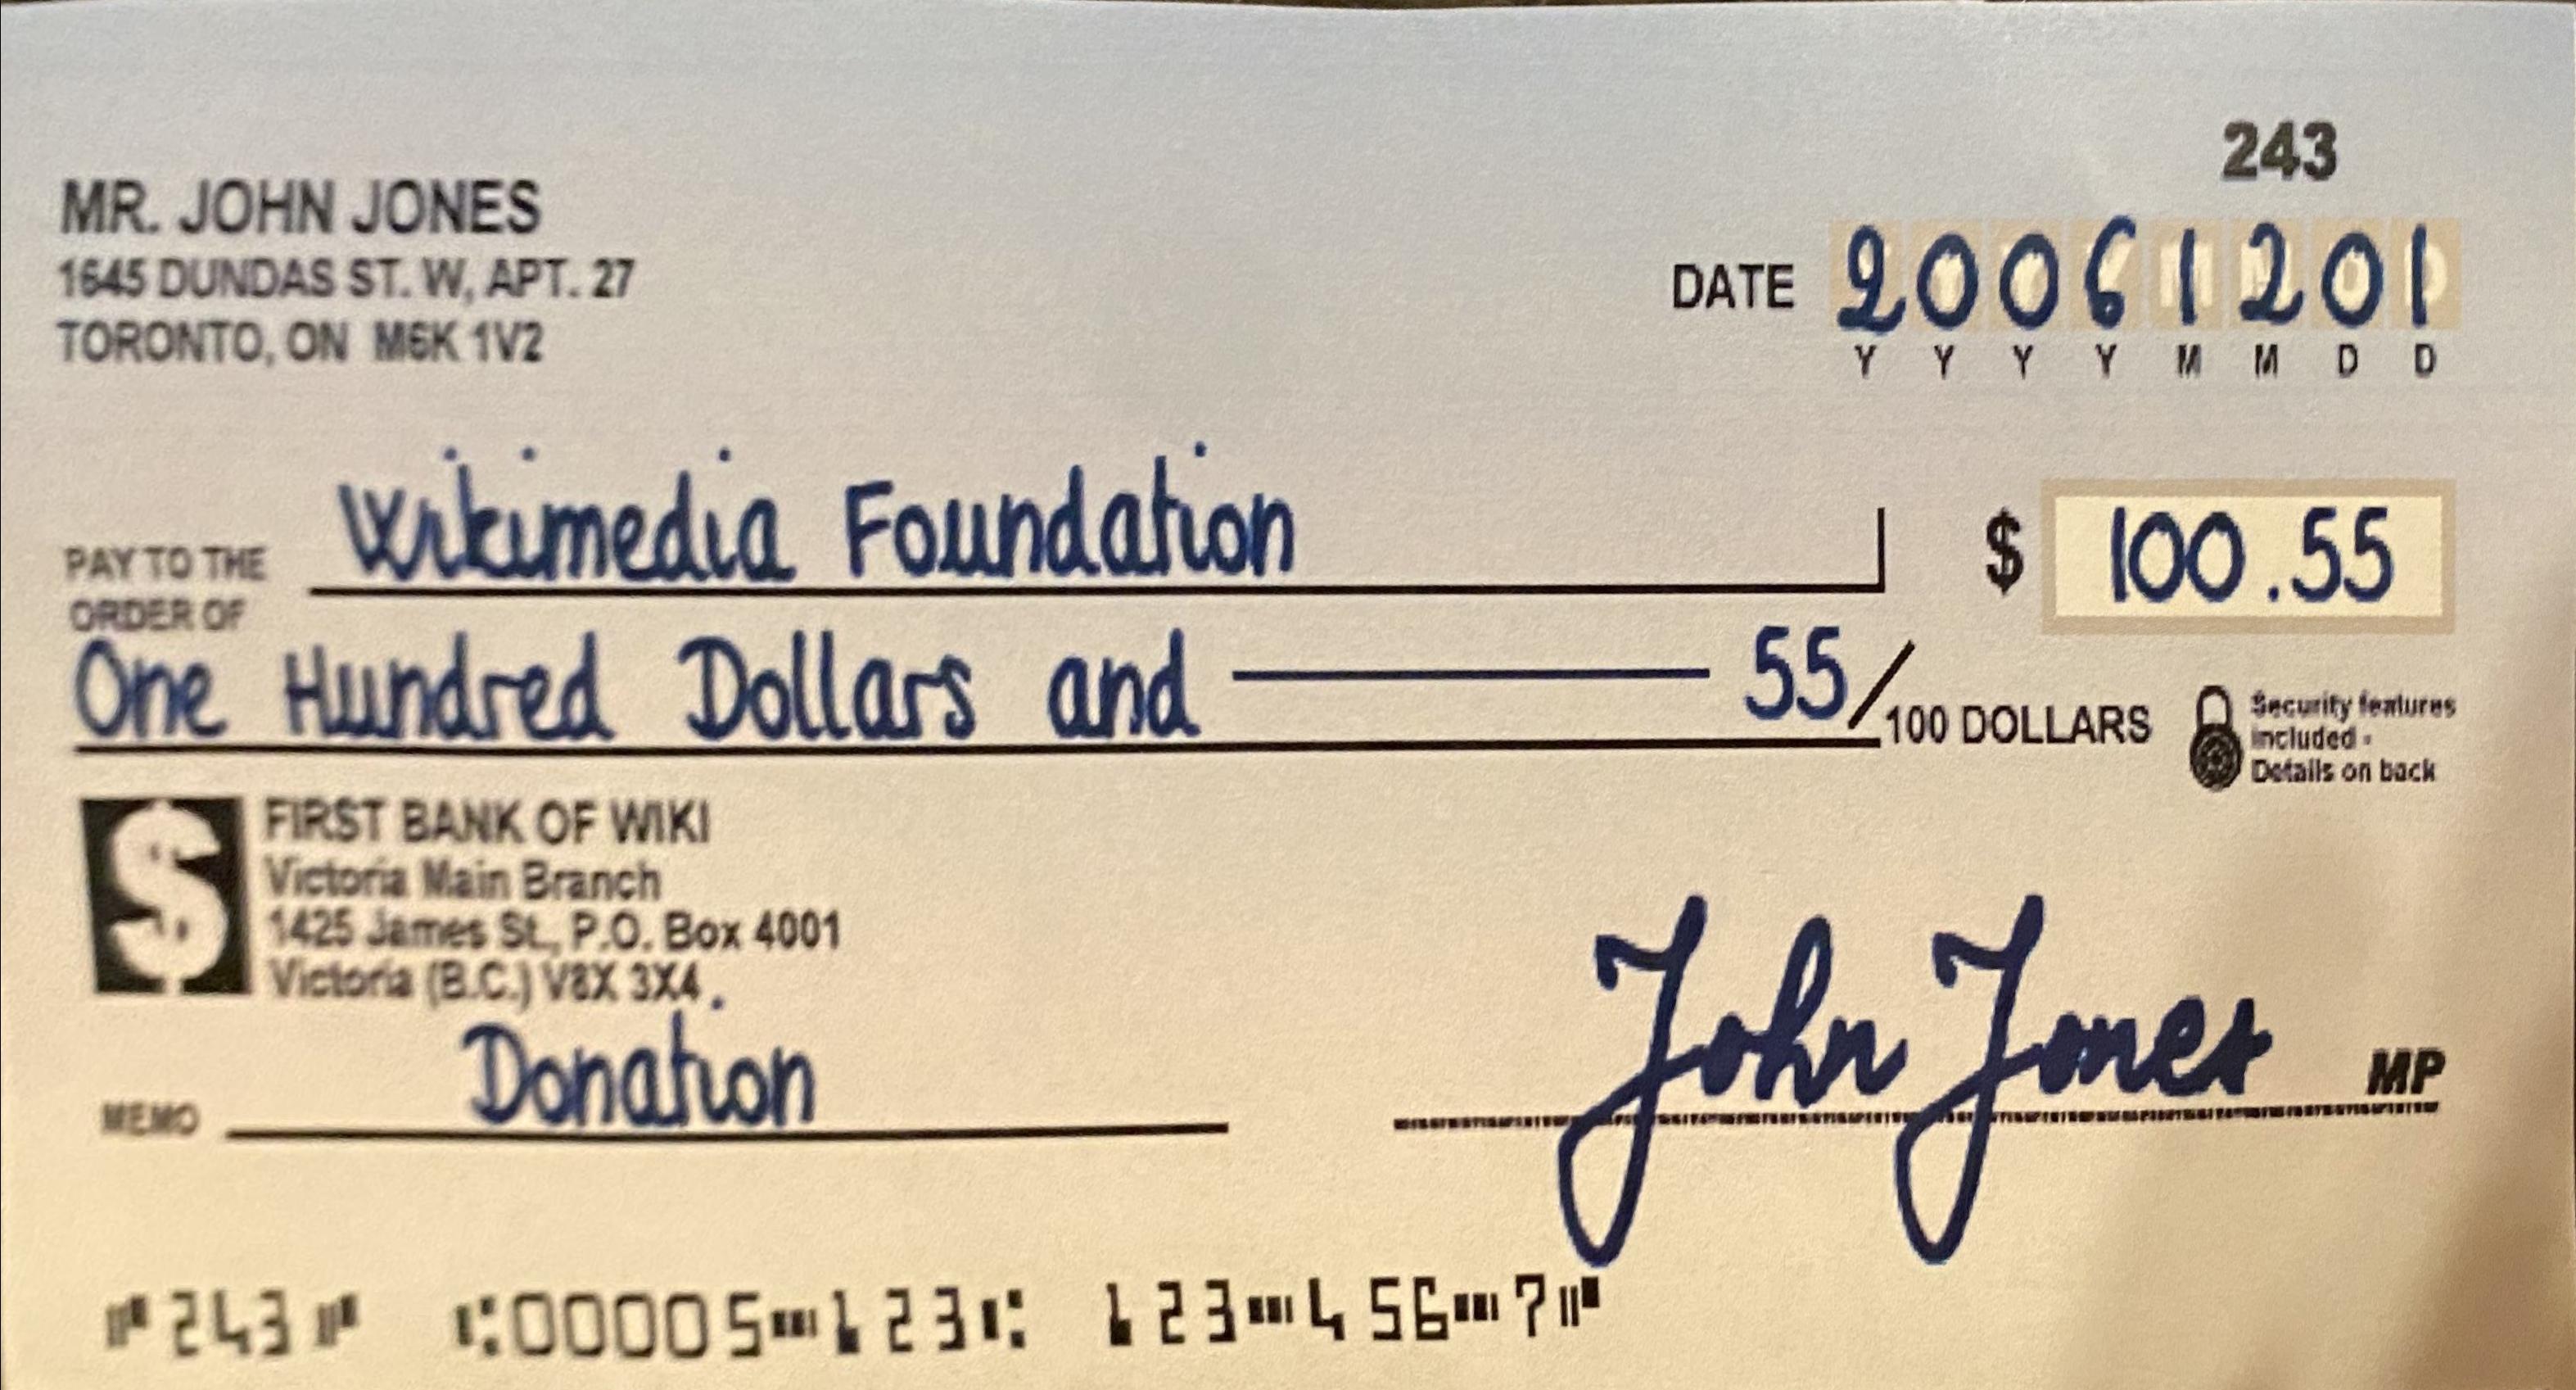 243
MR. JOHN JONES
1645 DUNDAS ST. W, APT. 27
TORONTO, ON M6K 1V2
DATE 20061201
Y Y Y Y M M D D
PAY TO THE ORDER OF Wikimedia Foundation $ 100.55
One Hundred Dollars and 55/100 DOLLARS
Security features
included.
Details on back
FIRST BANK OF WIKI
Victoria Main Branch
1425 James St., P.O. Box 4001
Victoria (B.C.) V8X 3X4
MEMO Donation
John Jones MP
⑈243⑈ ⑆00005⑉123⑆ 123⑉456⑉7⑈